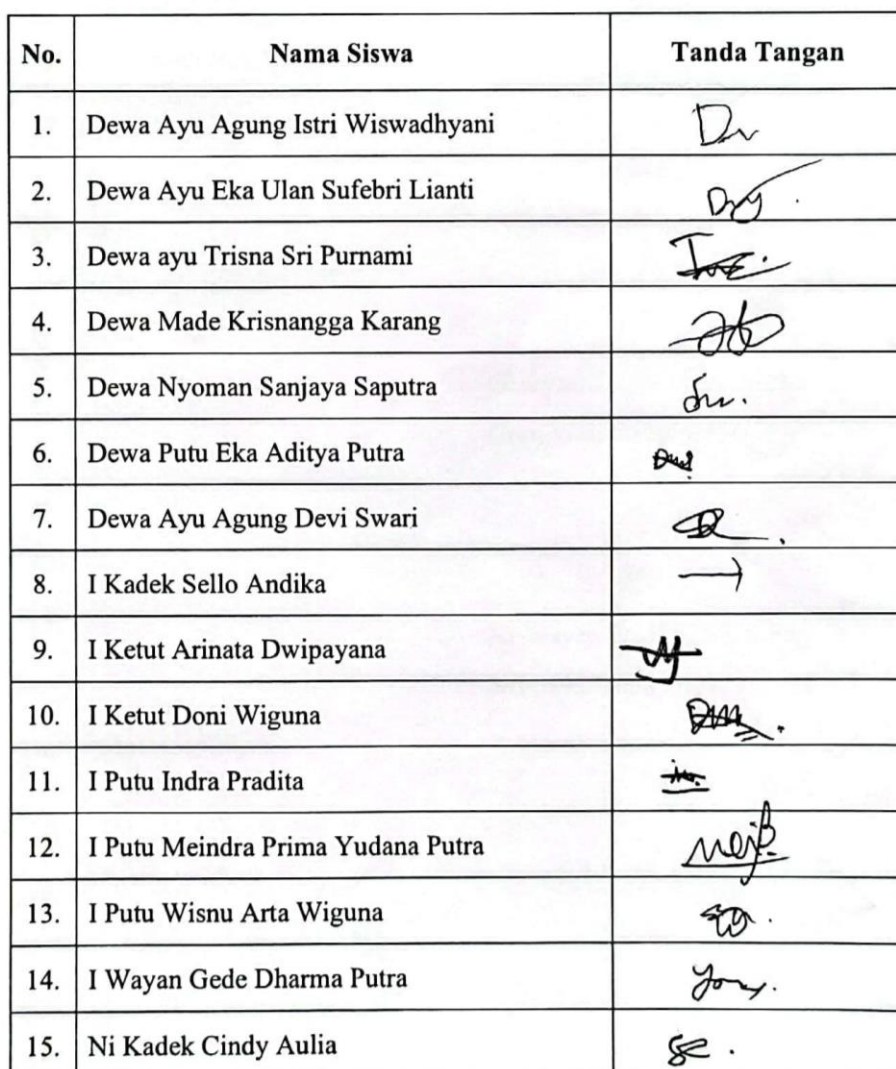 No. Nama Siswa Tanda Tangan
1. Dewa Ayu Agung Istri Wiswadhyani
2. Dewa Ayu Eka Ulan Sufebri Lianti
3. Dewa ayu Trisna Sri Purnami
4. Dewa Made Krisnangga Karang
5. Dewa Nyoman Sanjaya Saputra
6. Dewa Putu Eka Aditya Putra
7. Dewa Ayu Agung Devi Swari
8. I Kadek Sello Andika
9. I Ketut Arinata Dwipayana
10. I Ketut Doni Wiguna
11. I Putu Indra Pradita
12. I Putu Meindra Prima Yudana Putra
13. I Putu Wisnu Arta Wiguna
14. I Wayan Gede Dharma Putra
15. Ni Kadek Cindy Aulia